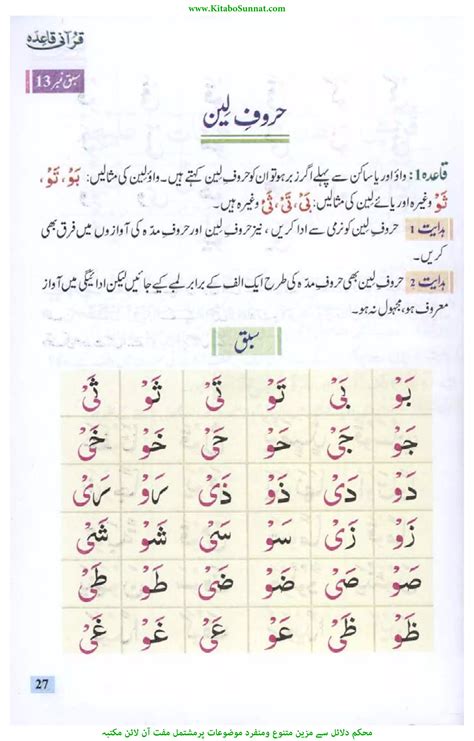 www.KitaboSunnat.com
قرآنی قاعدہ
سبق نمبر 13
حروفِ لِین
قاعدہ 1: واؤ اور یا ساکن سے پہلے اگر زبر ہو تو ان کو حروفِ لین کہتے ہیں۔ واؤ لین کی مثالیں: بَوْ، تَوْ،
ثَوْ وغیرہ اور یائے لین کی مثالیں: بَیْ، تَیْ، ثَیْ وغیرہ ہیں۔
ہدایت 1 حروفِ لین کو نرمی سے ادا کریں، نیز حروفِ لین اور حروفِ مدّہ کی آوازوں میں فرق بھی
کریں۔
ہدایت 2 حروفِ لین بھی حروفِ مدّہ کی طرح ایک الف کے برابر لمبے کیے جائیں لیکن ادائیگی میں آواز
معروف ہو، مجہول نہ ہو۔
سبق
بَوْ بَیْ تَوْ تَیْ ثَوْ ثَیْ
جَوْ جَیْ حَوْ حَیْ خَوْ خَیْ
دَوْ دَیْ ذَوْ ذَیْ رَوْ رَیْ
زَوْ زَیْ سَوْ سَیْ شَوْ شَیْ
صَوْ صَیْ ضَوْ ضَیْ طَوْ طَیْ
ظَوْ ظَیْ عَوْ عَیْ غَوْ غَیْ
27
محکم دلائل سے مزین متنوع ومنفرد موضوعات پر مشتمل مفت آن لائن مکتبہ